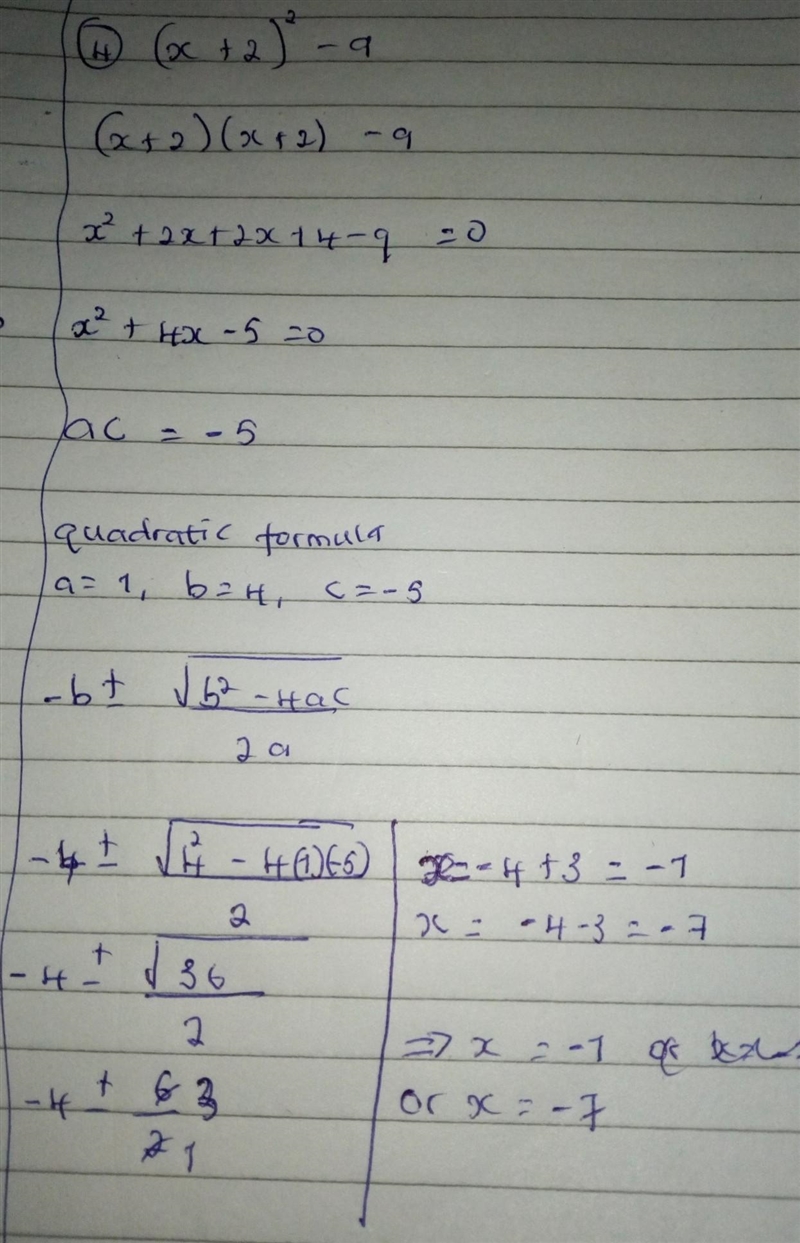 ④ (x + 2)² - 9
(x + 2)(x + 2) - 9
x² + 2x + 2x + 4 - 9 = 0
x² + 4x - 5 = 0
ac = - 5
quadratic formula
a = 1, b = 4, c = - 5
-b ± √b² - 4ac
2a
-4 ± √4² - 4(1)(-5)
2
-4 ± √36
2
-4 ± 6 3
2 1
x = - 4 + 3 = - 1
x = - 4 - 3 = - 7
⇒ x = -1
or x = - 7